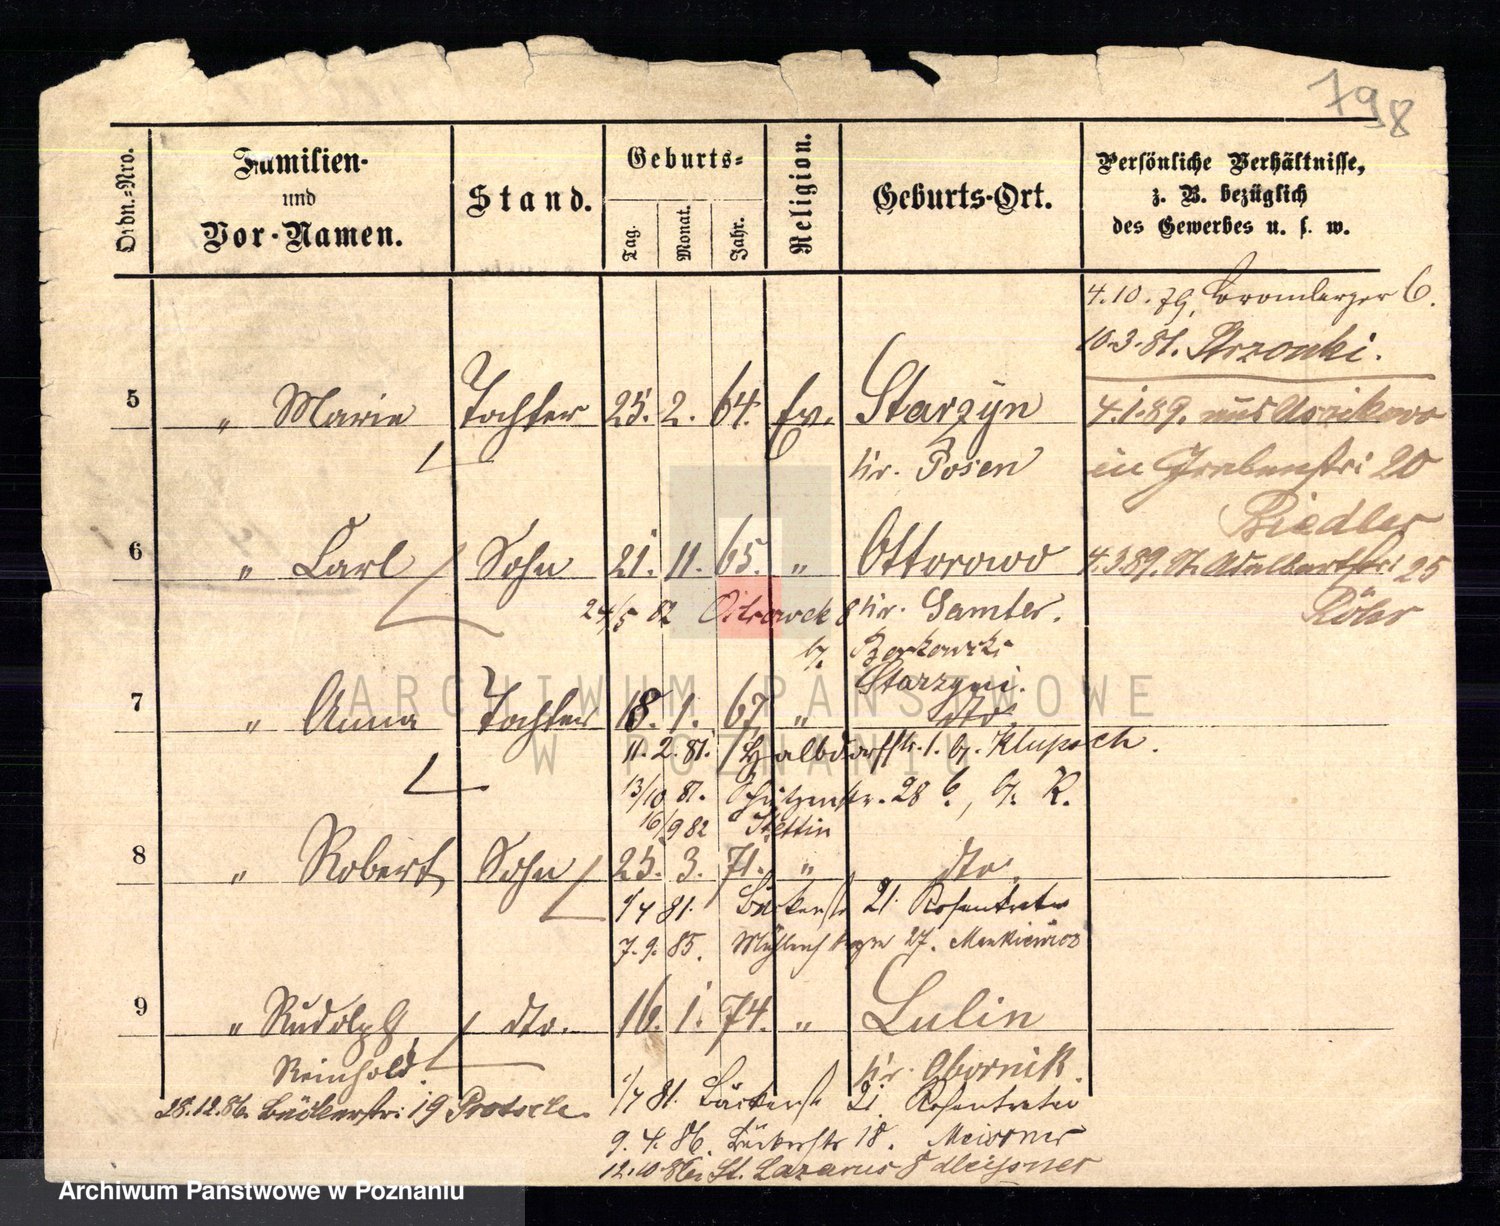 798
Ordn.-Nro.
Familien-
und
Vor-Namen.
Stand.
Geburts-
Tag.
Monat.
Jahr.
Religion.
Geburts-Ort.
Persönliche Verhältnisse,
z. B. bezüglich
des Gewerbes u. s. w.
4.10.79. Bromberger 6.
10.3.81.
5 „ Marie Tochter 25. 2. 64. Ev. Starzyn
Kr. Posen
4.1.89. aus
in Grabenstr: 20
Biedler
6 „ Carl Sohn 21. 11. 65. „ Ottorowo
4.3.89. St. Adalbertstr: 25
24/5 82 Ostrowek 8 Kr. Samter.
Röhr
b. Borkowski
Starzyni.
7 „ Anna Tochter 18. 1. 67. „ dto.
11. 2. 81. Halbdorfstr. 1. b. Klupsch.
13/10 81. Schützenstr. 28 b, b. K.
16/9 82 Stettin
8 „ Robert Sohn 25. 3. 71. „ dto.
1/7 81. Bäckerstr 21. Rosentreter
7. 9. 85. 27. Mankiewicz
9 „ Rudolph dto. 16. 1. 74. „ Lulin
Reinhold. Kr. Obornik.
28.12.86. Bäckerstr: 19
1/7 81. Bäckerstr 21. Rosentreter
9. 4. 86. Bäckerstr 18. Meissner
12.10.86. St. Lazarus 8 Meissner
ARCHIWUM PAŃSTWOWE
W POZNANIU
Archiwum Państwowe w Poznaniu